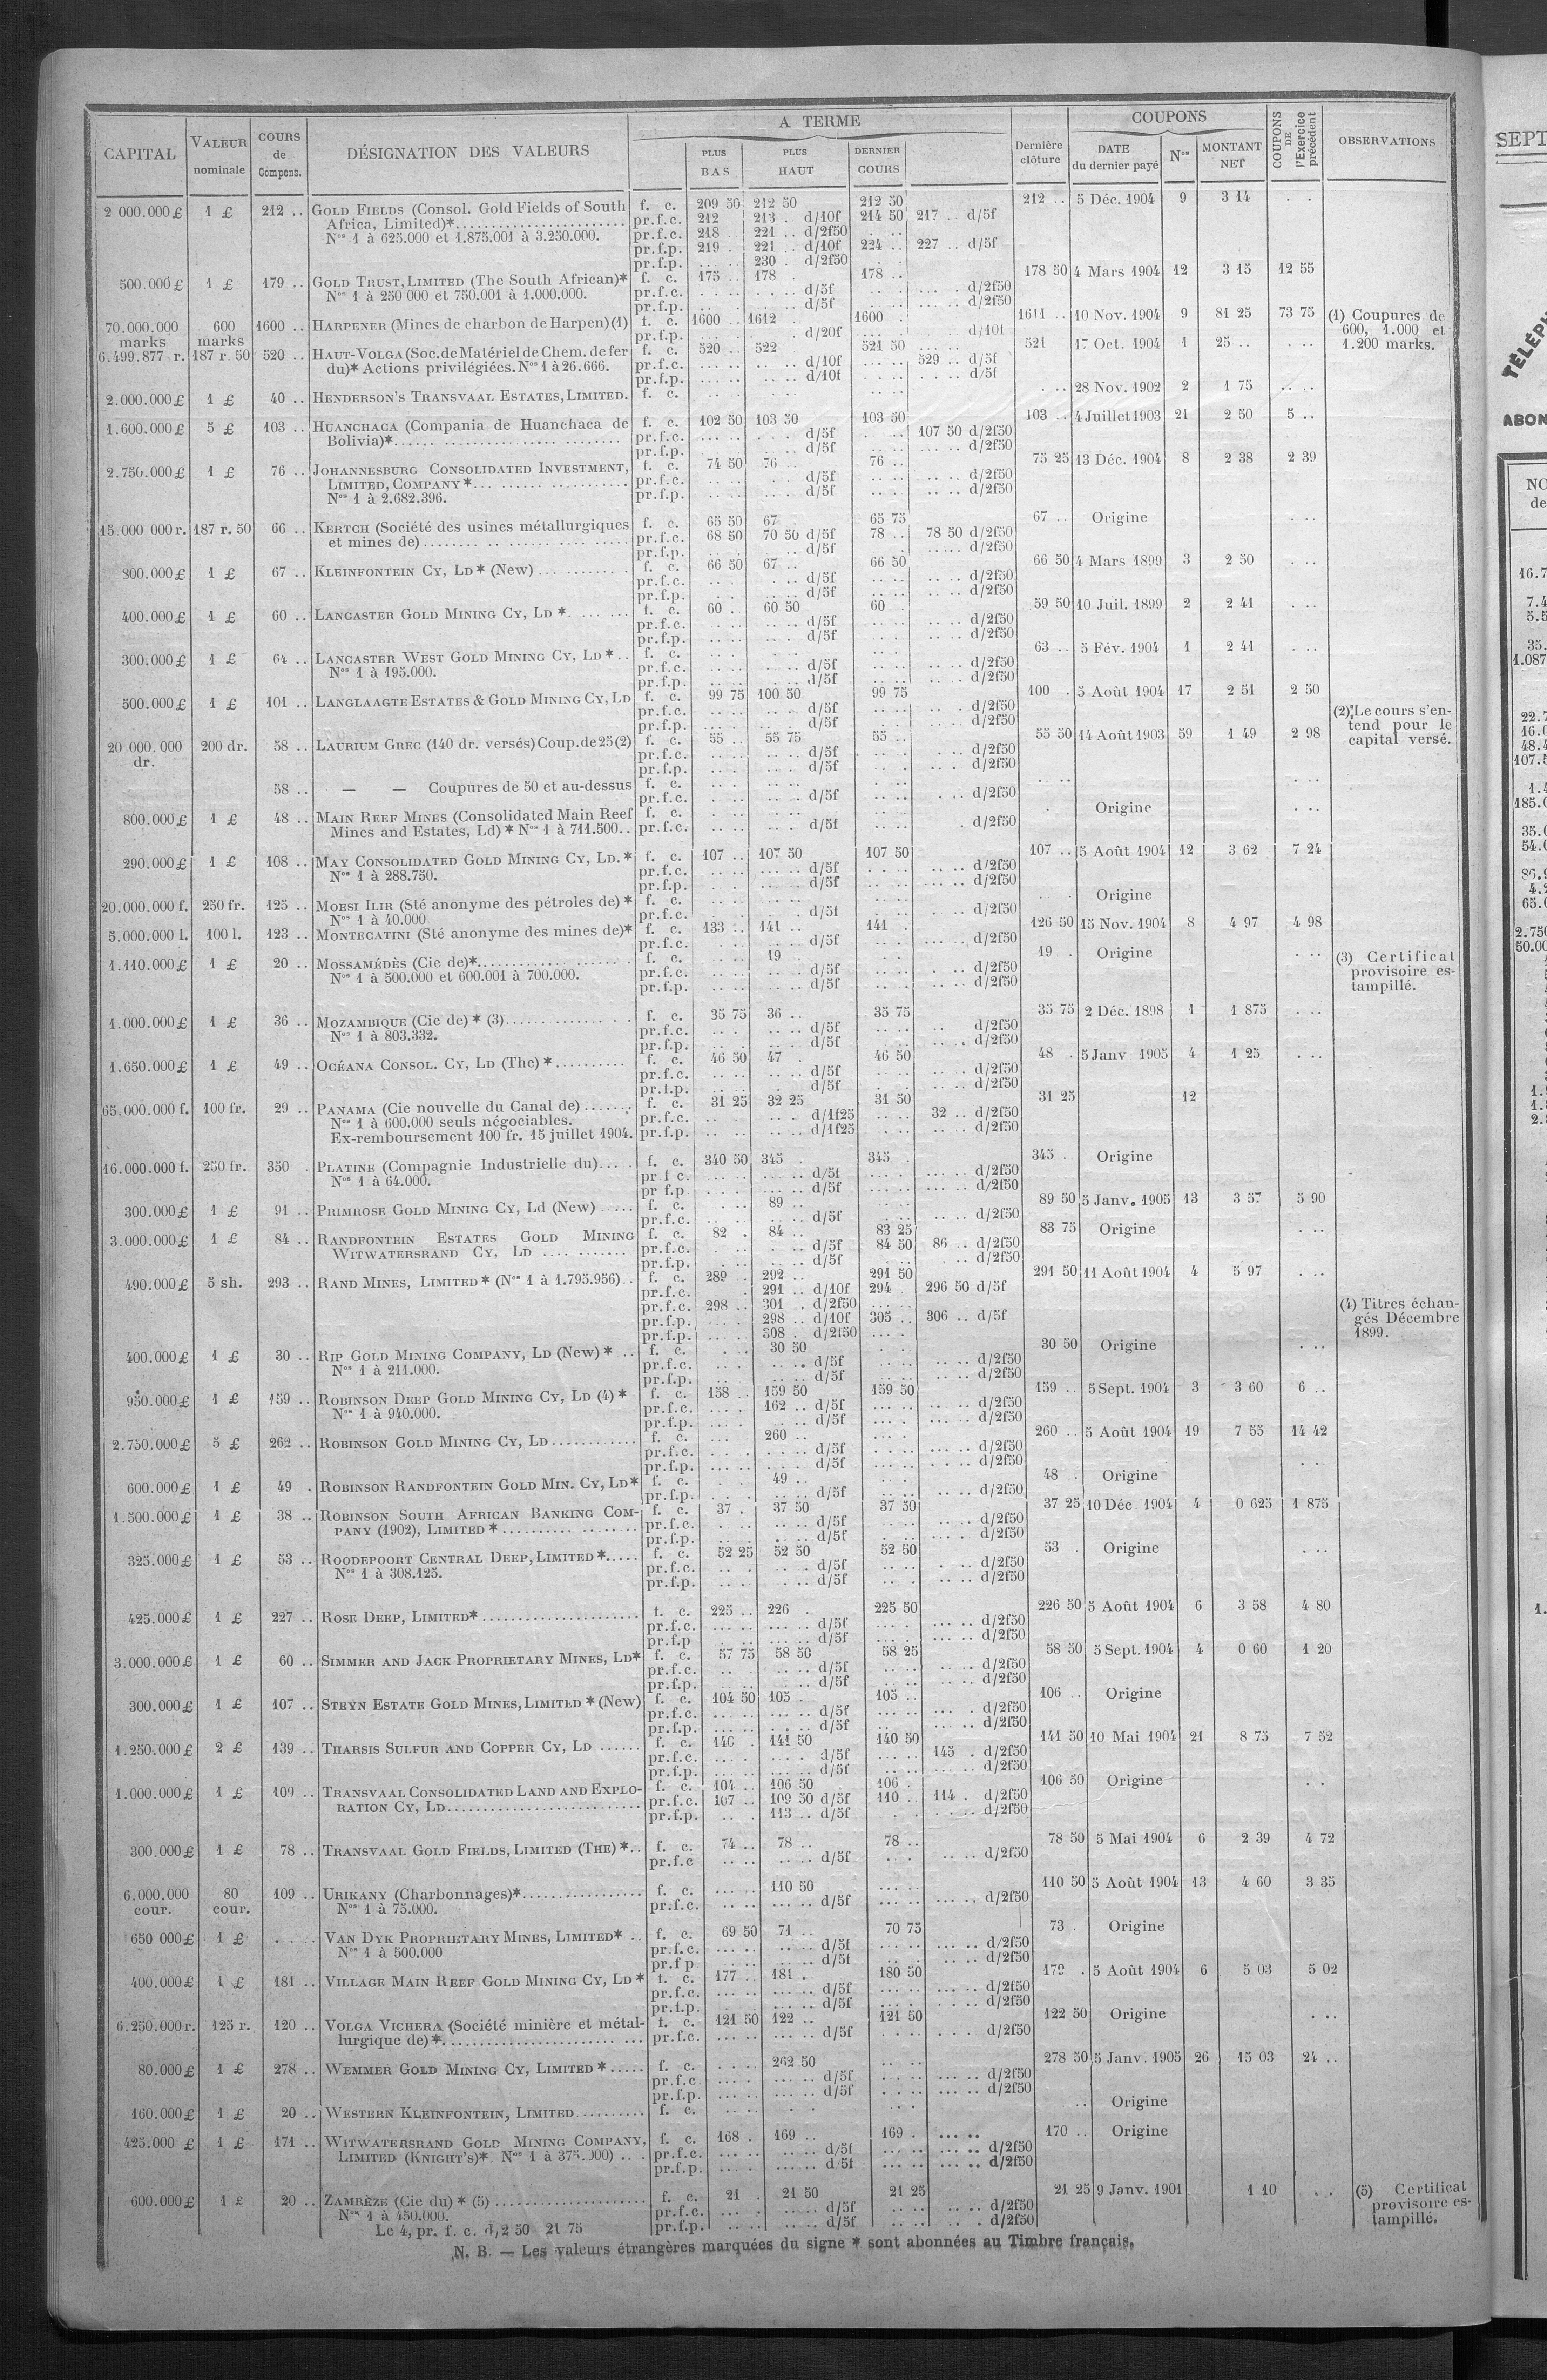 CAPITAL | VALEUR nominale | COURS de Compens. | DÉSIGNATION DES VALEURS | A TERME | PLUS BAS | PLUS HAUT | DERNIER COURS | Dernière clôture | COUPONS | DATE du dernier payé | Nos | MONTANT NET | COUPONS DE l'Exercice précédent | OBSERVATIONS
2 000.000 £ 1 £ 212 .. GOLD FIELDS (Consol. Gold Fields of South f. c. 209 50 212 50 212 50 212 .. 5 Déc. 1904 9 3 14 . .
Africa, Limited)* pr.f.c. 212 213 . d/10f 214 50 217 .. d/5f
Nos 1 à 625.000 et 1.875.001 à 3.250.000. pr.f.c. 218 221 .. d/2f50
pr.f.p. 219 . 221 .. d/10f 224 .. 227 .. d/5f
pr.f.p. 230 . d/2f50
500.000 £ 1 £ 179 .. GOLD TRUST, LIMITED (The South African)* f. c. 175 .. 178 . 178 .. 178 50 4 Mars 1904 12 3 15 12 55
Nos 1 à 250 000 et 750.001 à 1.000.000. pr.f.c. d/5f d/2f50
pr.f.p. d/5f d/2f50
70.000.000 marks 600 marks 1600 .. HARPENER (Mines de charbon de Harpen) (1) f. c. 1600 .. 1612 . 1600 . 1611 .. 10 Nov. 1904 9 81 25 73 75 (1) Coupures de 600, 1.000 et 1.200 marks.
pr.f.p. d/20f d/10f
6.499.877 r. 187 r. 50 520 .. HAUT-VOLGA (Soc. de Matériel de Chem. de fer f. c. 520 .. 522 521 50 521 17 Oct. 1904 1 25 .. . ..
du)* Actions privilégiées. Nos 1 à 26.666. pr.f.c. d/10f 529 .. d/5f
pr.f.p. d/10f d/5f
2.000.000 £ 1 £ 40 .. HENDERSON'S TRANSVAAL ESTATES, LIMITED. f. c. 28 Nov. 1902 2 1 75 .. .
1.600.000 £ 5 £ 103 .. HUANCHACA (Compania de Huanchaca de f. c. 102 50 103 50 103 50 103 .. 4 Juillet 1903 21 2 50 5 ..
Bolivia)* pr.f.c. d/5f 107 50 d/2f50
pr.f.p. d/5f d/2f50
2.750.000 £ 1 £ 76 .. JOHANNESBURG CONSOLIDATED INVESTMENT, f. c. 74 50 76 .. 76 .. 75 25 13 Déc. 1904 8 2 38 2 39
LIMITED, COMPANY * pr.f.c. d/5f d/2f50
Nos 1 à 2.682.396. pr.f.p. d/5f d/2f50
15.000 000 r. 187 r. 50 66 .. KERTCH (Société des usines métallurgiques f. c. 65 50 67 65 75 67 .. Origine . ..
et mines de) pr.f.c. 68 50 70 50 d/5f 78 .. 78 50 d/2f50
pr.f.p. d/5f d/2f50
800.000 £ 1 £ 67 .. KLEINFONTEIN CY, LD * (New) f. c. 66 50 67 .. 66 50 66 50 4 Mars 1899 3 2 50 . ..
pr.f.c. d/5f d/2f50
pr.f.p. d/5f d/2f50
400.000 £ 1 £ 60 .. LANCASTER GOLD MINING CY, LD * f. c. 60 .. 60 50 60 . 59 50 10 Juil. 1899 2 2 41 . ..
pr.f.c. d/5f d/2f50
pr.f.p. d/5f d/2f50
300.000 £ 1 £ 64 .. LANCASTER WEST GOLD MINING CY, LD * f. c. 63 .. 5 Fév. 1904 1 2 41 . ..
Nos 1 à 195.000. pr.f.c. d/5f d/2f50
pr.f.p. d/5f d/2f50
500.000 £ 1 £ 101 .. LANGLAAGTE ESTATES & GOLD MINING CY, LD f. c. 99 75 100 50 99 75 100 . 5 Août 1904 17 2 51 2 50
pr.f.c. d/5f d/2f50
pr.f.p. d/5f d/2f50
20 000.000 dr. 200 dr. 58 .. LAURIUM GREC (140 dr. versés) Coup. de 25 (2) f. c. 55 .. 55 75 55 .. 55 50 14 Août 1903 59 1 49 2 98 (2) Le cours s'entend pour le capital versé.
pr.f.c. d/5f d/2f50
pr.f.p. d/5f d/2f50
58 .. — — Coupures de 50 et au-dessus f. c.
pr.f.c. d/5f d/2f50
800.000 £ 1 £ 48 .. MAIN REEF MINES (Consolidated Main Reef f. c. Origine . ..
Mines and Estates, Ld) * Nos 1 à 711.500.. pr.f.c. d/5f d/2f50
290.000 £ 1 £ 108 .. MAY CONSOLIDATED GOLD MINING CY, LD. * f. c. 107 .. 107 50 107 50 107 .. 5 Août 1904 12 3 62 7 24
Nos 1 à 288.750. pr.f.c. d/5f d/2f50
pr.f.p. d/5f d/2f50
20.000.000 f. 250 fr. 125 .. MOESI ILIR (Sté anonyme des pétroles de) * f. c. Origine
Nos 1 à 40.000 pr.f.c. d/5f d/2f50
5.000.000 l. 100 l. 123 .. MONTECATINI (Sté anonyme des mines de)* f. c. 133 .. 141 .. 141 . 126 50 15 Nov. 1904 8 4 97 4 98
pr.f.c. d/5f d/2f50
1.110.000 £ 1 £ 20 .. MOSSAMÉDÈS (Cie de)* f. c. 19 19 . Origine . .. (3) Certificat provisoire estampillé.
Nos 1 à 500.000 et 600.001 à 700.000. pr.f.c. d/5f d/2f50
pr.f.p. d/5f d/2f50
1.000.000 £ 1 £ 36 .. MOZAMBIQUE (Cie de) * (3) f. c. 35 75 36 .. 35 75 35 75 2 Déc. 1898 1 1 875 . ..
Nos 1 à 803.332. pr.f.c. d/5f d/2f50
pr.f.p. d/5f d/2f50
1.650.000 £ 1 £ 49 .. OCÉANA CONSOL. CY, LD (The) * f. c. 46 50 47 . 46 50 48 . 5 Janv 1905 4 1 25 . ..
pr.f.c. d/5f d/2f50
pr.f.p. d/5f d/2f50
65.000.000 f. 100 fr. 29 .. PANAMA (Cie nouvelle du Canal de) f. c. 31 25 32 25 31 50 31 25 12
Nos 1 à 600.000 seuls négociables. pr.f.c. d/1f25 32 .. d/2f50
Ex-remboursement 100 fr. 15 juillet 1904. pr.f.p. d/1f25 d/2f50
16.000.000 f. 250 fr. 350 . PLATINE (Compagnie Industrielle du) f. c. 340 50 345 . 345 . 345 . Origine
Nos 1 à 64.000. pr f c. d/5f d/2f50
pr f.p d/5f d/2f50
300.000 £ 1 £ 91 .. PRIMROSE GOLD MINING CY, Ld (New) f. c. 89 .. 89 50 5 Janv. 1905 13 3 57 5 90
pr.f.c. d/5f d/2f50
3.000.000 £ 1 £ 84 .. RANDFONTEIN ESTATES GOLD MINING f. c. 82 . 84 .. 83 25 83 75 Origine . ..
WITWATERSRAND CY, LD pr.f.c. d/5f 84 50 86 .. d/2f50
pr.f.p. d/5f d/2f50
490.000 £ 5 sh. 293 .. RAND MINES, LIMITED * (Nos 1 à 1.795.956) f. c. 289 .. 292 .. 291 50 291 50 11 Août 1904 4 5 97 . ..
pr.f.c. 291 .. d/10f 294 . 296 50 d/5f
pr.f.c. 298 .. 301 . d/2f50
pr.f.p. 298 .. d/10f 305 .. 306 .. d/5f (4) Titres échangés Décembre 1899.
pr.f.p. 308 . d/2f50
400.000 £ 1 £ 30 .. RIP GOLD MINING COMPANY, LD (New) * f. c. 30 50 30 50 Origine . ..
Nos 1 à 211.000. pr.f.c. d/5f d/2f50
pr.f.p. d/5f d/2f50
950.000 £ 1 £ 159 .. ROBINSON DEEP GOLD MINING CY, LD (4) * f. c. 158 .. 159 50 159 50 159 .. 5 Sept. 1904 3 3 60 6 ..
Nos 1 à 940.000. pr.f.c. 162 .. d/5f d/2f50
pr.f.p. d/5f d/2f50
2.750.000 £ 5 £ 262 .. ROBINSON GOLD MINING CY, LD f. c. 260 .. 260 .. 5 Août 1904 19 7 55 14 42
pr.f.c. d/5f d/2f50
pr.f.p. d/5f d/2f50
600.000 £ 1 £ 49 . ROBINSON RANDFONTEIN GOLD MIN. CY, LD* f. c. 49 . 48 .. Origine . ..
pr.f.p. d/5f d/2f50
1.500.000 £ 1 £ 38 .. ROBINSON SOUTH AFRICAN BANKING COM- f. c. 37 . 37 50 37 50 37 25 10 Déc. 1904 4 0 625 1 875
PANY (1902), LIMITED * pr.f.c. d/5f d/2f50
pr.f.p. d/5f d/2f50
325.000 £ 1 £ 53 .. ROODEPOORT CENTRAL DEEP, LIMITED * f. c. 52 25 52 50 52 50 53 . Origine . ..
Nos 1 à 308.125. pr.f.c. d/5f d/2f50
pr.f.p. d/5f d/2f50
425.000 £ 1 £ 227 .. ROSE DEEP, LIMITED* f. c. 225 .. 226 . 225 50 226 50 5 Août 1904 6 3 58 4 80
pr.f.c. d/5f d/2f50
pr.f.p d/5f d/2f50
3.000.000 £ 1 £ 60 .. SIMMER AND JACK PROPRIETARY MINES, LD* f. c. 57 75 58 50 58 25 58 50 5 Sept. 1904 4 0 60 1 20
pr.f.c. d/5f d/2f50
pr.f.p. d/5f d/2f50
300.000 £ 1 £ 107 .. STEYN ESTATE GOLD MINES, LIMITED * (New) f. c. 104 50 105 . 105 .. 106 .. Origine
pr.f.c. d/5f d/2f50
pr.f.p. d/5f d/2f50
1.250.000 £ 2 £ 139 .. THARSIS SULFUR AND COPPER CY, LD f. c. 140 . 141 50 140 50 141 50 10 Mai 1904 21 8 75 7 52
pr.f.c. d/5f 145 . d/2f50
pr.f.p. d/5f d/2f50
1.000.000 £ 1 £ 109 .. TRANSVAAL CONSOLIDATED LAND AND EXPLO- f. c. 104 .. 106 50 106 . 106 50 Origine
RATION CY, LD pr.f.c. 107 .. 109 50 d/5f 110 .. 114 . d/2f50
pr.f.p. 113 .. d/5f d/2f50
300.000 £ 1 £ 78 .. TRANSVAAL GOLD FIELDS, LIMITED (THE) * f. c. 74 .. 78 .. 78 .. 78 50 5 Mai 1904 6 2 39 4 72
pr.f.c d/5f d/2f50
6.000.000 cour. 80 cour. 109 .. URIKANY (Charbonnages)* f. c. 110 50 110 50 5 Août 1904 13 4 60 3 35
Nos 1 à 75.000. pr.f.c. d/5f d/2f50
650 000 £ 1 £ VAN DYK PROPRIETARY MINES, LIMITED* f. c. 69 50 71 .. 70 75 73 . Origine
Nos 1 à 500.000 pr.f.c. d/5f d/2f50
pr.f p d/5f d/2f50
400.000 £ 1 £ 181 .. VILLAGE MAIN REEF GOLD MINING CY, LD * f. c. 177 .. 181 . 180 50 179 . 5 Août 1904 6 5 03 5 02
pr.f.c. d/5f d/2f50
pr.f.p. d/5f d/2f50
6.250.000 r. 125 r. 120 .. VOLGA VICHERA (Société minière et métal- f. c. 121 50 122 .. 121 50 122 50 Origine . ..
lurgique de) * pr.f.c. d/5f d/2f50
80.000 £ 1 £ 278 .. WEMMER GOLD MINING CY, LIMITED * f. c. 262 50 278 50 5 Janv. 1905 26 15 03 24 ..
pr.f.c. d/5f d/2f50
pr.f.p. d/5f d/2f50
160.000 £ 1 £ 20 .. WESTERN KLEINFONTEIN, LIMITED f. c. Origine
425.000 £ 1 £ 171 .. WITWATERSRAND GOLD MINING COMPANY, f. c. 168 . 169 .. 169 . 170 .. Origine
LIMITED (KNIGHT'S)* Nos 1 à 375.000) pr.f.c. d/5f d/2f50
pr.f.p. d/5f d/2f50
600.000 £ 1 £ 20 .. ZAMBÈZE (Cie du) * (5) f. c. 21 . 21 50 21 25 21 25 9 Janv. 1901 1 10 . . (5) Certificat provisoire estampillé.
Nos 1 à 450.000. pr.f.c. d/5f d/2f50
Le 4, pr. f. c. d/2 50 21 75 pr.f.p. d/5f d/2f50
N. B. — Les valeurs étrangères marquées du signe * sont abonnées au Timbre français.
SEPT
TÉLÉPH
ABON
NO
de